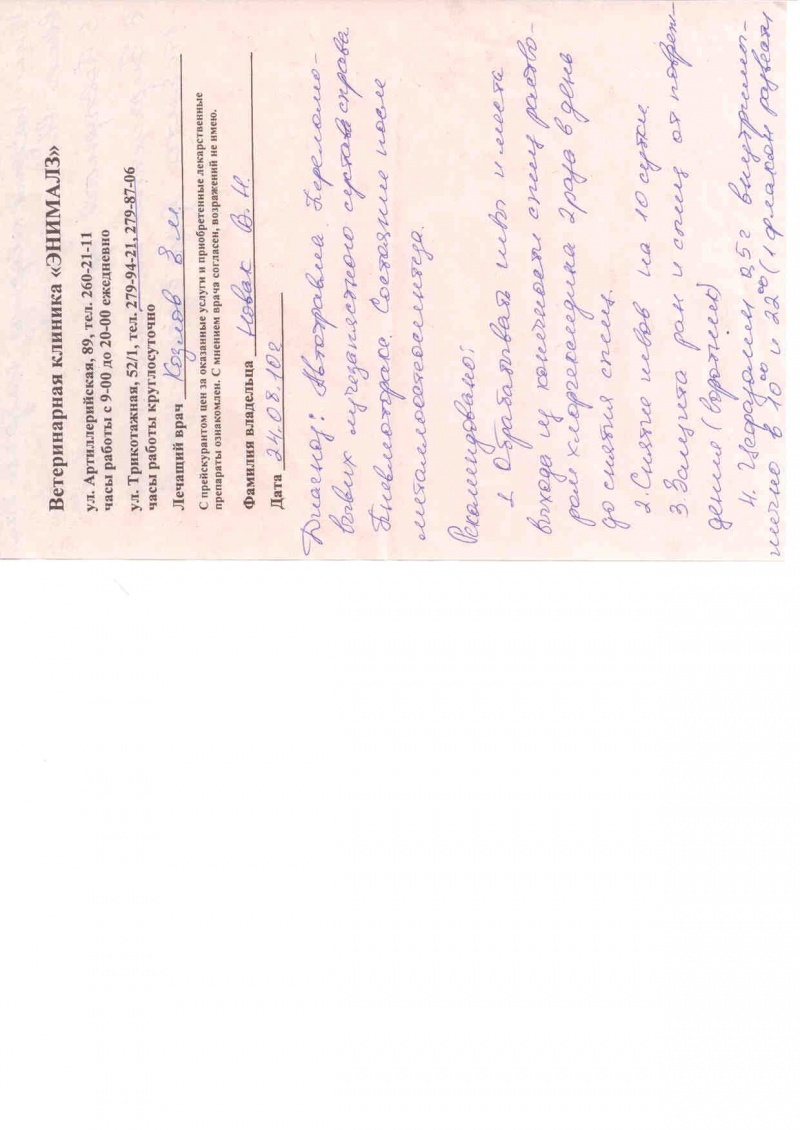 Ветеринарная клиника «ЭНИМАЛЗ»
ул. Артиллерийская, 89, тел. 260-21-11
часы работы с 9-00 до 20-00 ежедневно
ул. Трикотажная, 52/1, тел. 279-94-21, 279-87-06
часы работы круглосуточно
Лечащий врач Козлов
С прейскурантом цен за оказанные услуги и приобретенные лекарственные
препараты ознакомлен. С мнением врача согласен, возражений не имею.
Фамилия владельца Новак В. Н.
Дата 24.08.10г
Диагноз: Автотравма. Переломо-
вывих лучезапястного сустава справа
Пневмоторакс. Состояние после
металлоостеосинтеза.
Рекомендовано:
1. Обрабатывать швы и места
выхода из конечности спиц раство-
ром хлоргексидина 2 раза в день
до снятия спиц.
2. Снятие швов на 10 сутки.
3. Защита ран и спиц от повреж-
дения (воротник)
4. Цефазолин 0,5г внутримы-
шечно в 10⁰⁰ и 22⁰⁰ (1 флакон развести